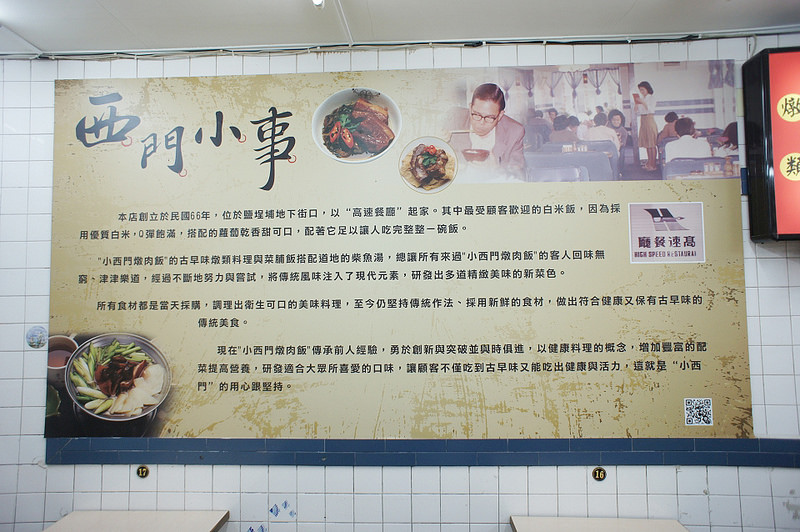 西門小事
本店創立於民國66年，位於鹽埕埔地下街口，以“高速餐廳”起家。其中最受顧客歡迎的白米飯，因為採
用優質白米，Q彈飽滿，搭配的蘿蔔乾香甜可口，配著它足以讓人吃完整整一碗飯。
"小西門燉肉飯"的古早味燉類料理與菜脯飯搭配道地的柴魚湯，總讓所有來過"小西門燉肉飯"的客人回味無
窮、津津樂道，經過不斷地努力與嘗試，將傳統風味注入了現代元素，研發出多道精緻美味的新菜色。
所有食材都是當天採購，調理出衛生可口的美味料理，至今仍堅持傳統作法、採用新鮮的食材，做出符合健康又保有古早味的
傳統美食。
現在"小西門燉肉飯"傳承前人經驗，勇於創新與突破並與時俱進，以健康料理的概念，增加豐富的配
菜提高營養，研發適合大眾所喜愛的口味，讓顧客不僅吃到古早味又能吃出健康與活力，這就是“小西
門”的用心跟堅持。
廳餐速高
HIGH SPEED RESTAURAI
燉
類
17
16